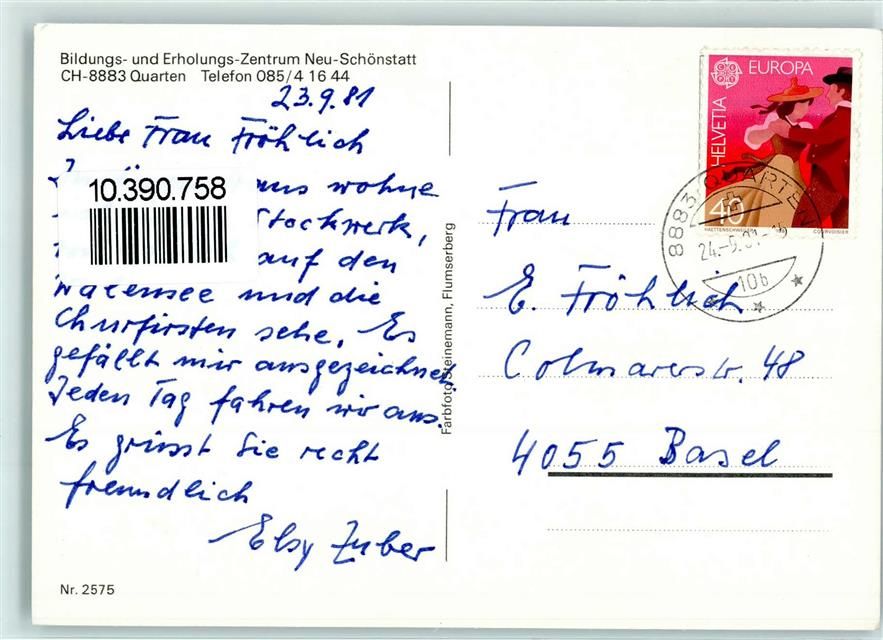 Bildungs- und Erholungs-Zentrum Neu-Schönstatt
CH-8883 Quarten Telefon 085/4 16 44
23.9.81
Liebe Frau Fröhlich
aus wohne
Stockwerk,
auf den
Walensee und die
Churfirsten sehe. Es
gefällt mir ausgezeichnet.
Jeden Tag fahren wir aus.
Es grüsst Sie recht
freundlich
Elsy Zuber
Nr. 2575
10.390.758
Farbfoto Steinemann, Flumserberg
EUROPA
HELVETIA
40
HAETTENSCHWEILER
COURVOISIER
8883 QUARTEN
10b
Frau
E. Fröhlich
Colmarerstr. 48
4055 Basel